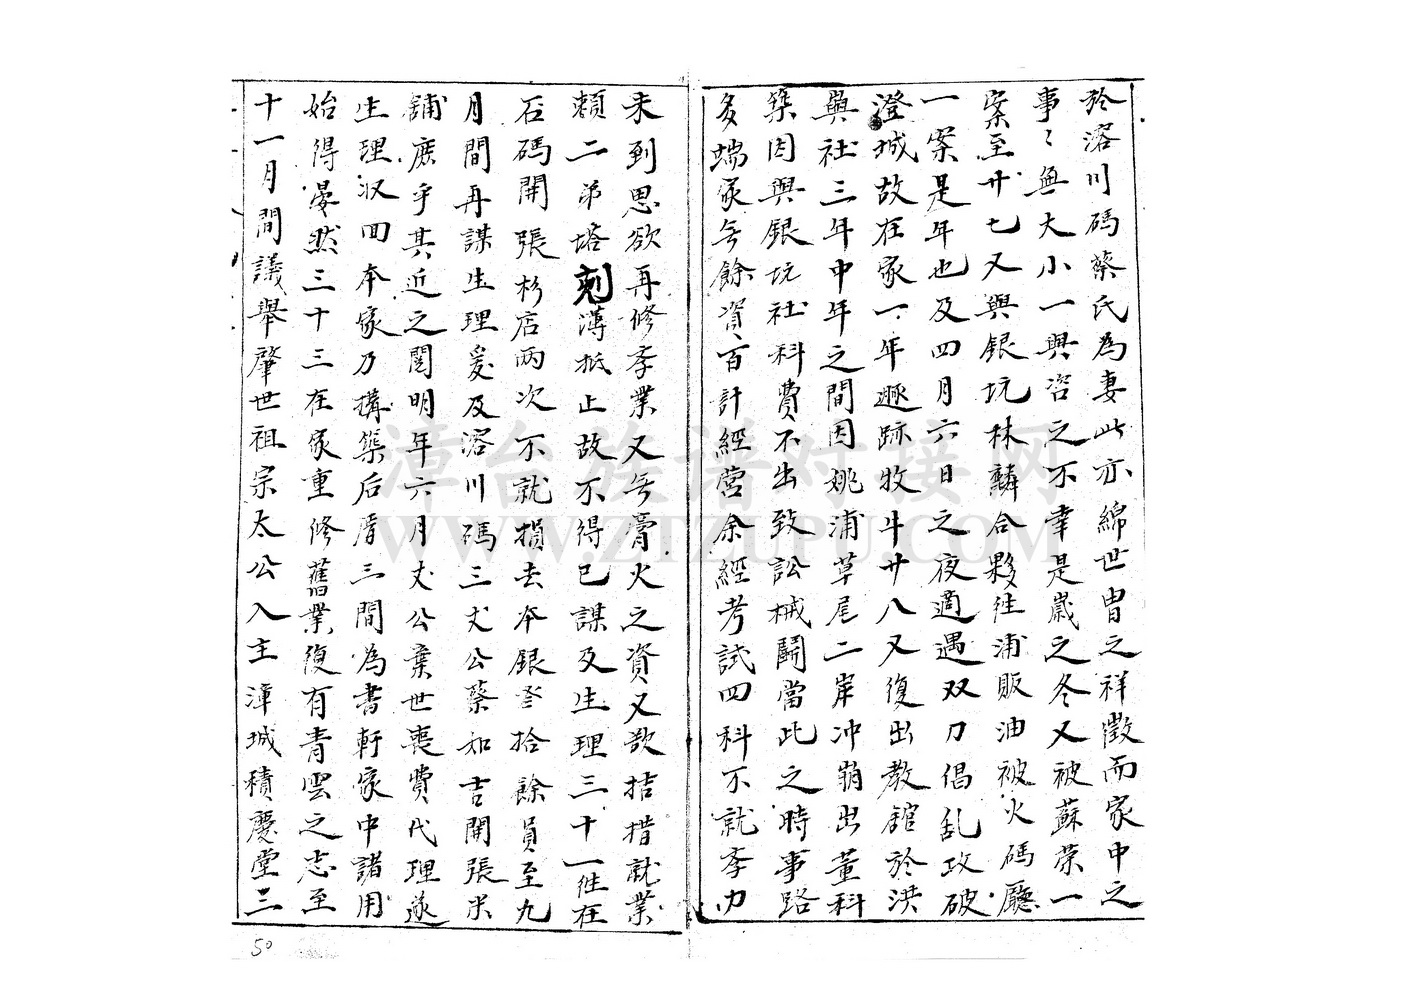 於溶川碼蔡氏為妻此亦綿世曾之祥徵而家中之
事〻無大小一與咨之不幸是歲之冬又被蘇荣一
案至廿七又與銀坑林麟合夥往浦販油被火碼廳
一案是年也及四月六日之夜適遇双刀倡乱攻破
澄城故在家一年遯跡牧牛廿八又復出教舘於洪
與社三年中年之間因姚浦草尾二岸冲崩出董科
築因與銀坑社科費不出致訟械鬪當此之時事路
多端家無餘資百計經營余經考試四科不就李力
未到思欲再修李業又無膏火之資又欲拮措就業
賴二弟塔剋薄抵止故不得已謀及生理三十一往在
石碼開張杉店兩次不就損去本銀叁拾餘員至九
月間再謀生理爰及溶川碼三丈公蔡和吉開張米
舖庶乎其近之閏明年六月丈公棄世喪費代理遂
生理収回本家乃搆築后厝三間為書軒家中諸用
始得晏然三十三在家重修舊業復有青雲之志至
十一月間議舉肇世祖宗太公入主漳城積慶堂三
50
漳台族谱对接网
WWW.ZTZUPU.COM